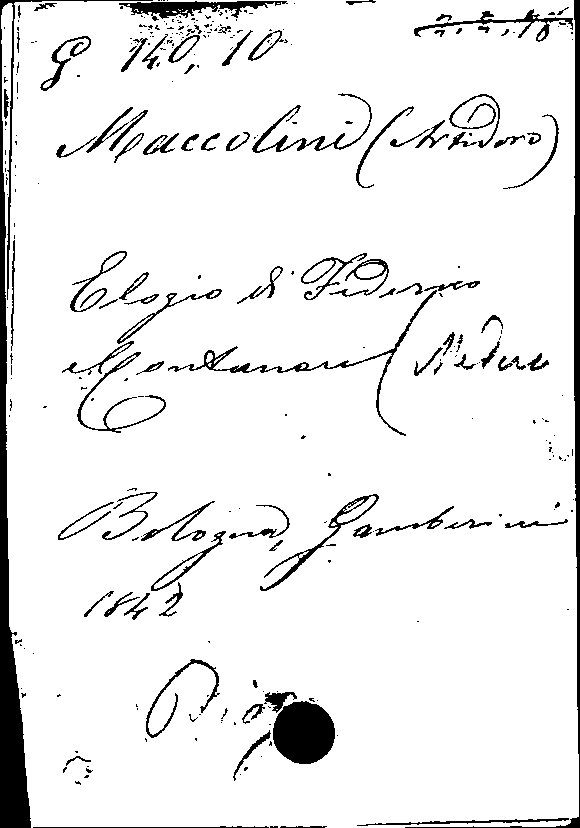 G. 140, 10
Maccolini (Artidoro)
Elogio di Federico
Montanari (
Bologna, Gamberini
1842